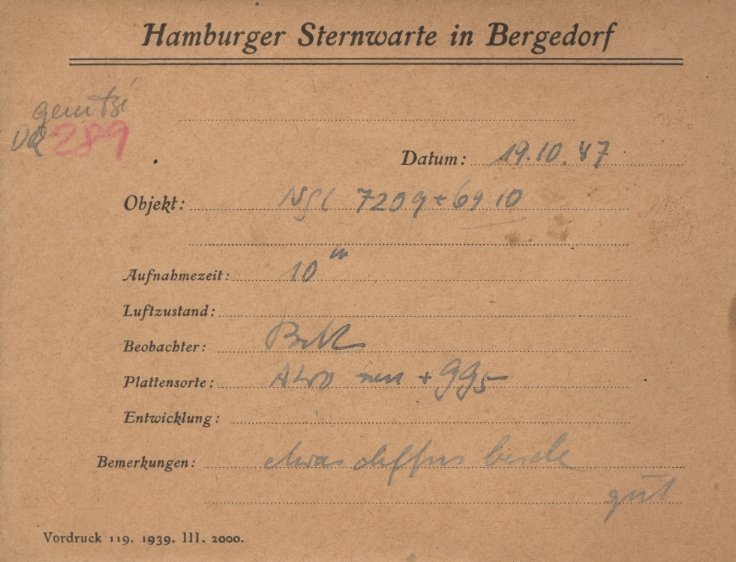 Hamburger Sternwarte in Bergedorf
289
Datum: 19.10.47
Objekt: NGC 7209 + 6910
Aufnahmezeit: 10 m
Luftzustand:
Beobachter:
Plattensorte: + 995
Entwicklung:
Bemerkungen: etwas diffus beide
gut
Vordruck 119. 1939. III. 2000.